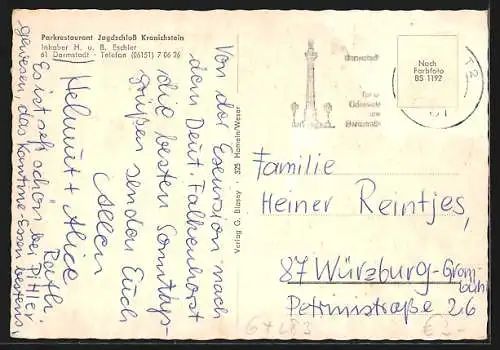 Parkrestaurant Jagdschloß Kranichstein
Inhaber H. u. B. Eschler
61 Darmstadt - Telefon (06151) 7 06 26
Von der Exkursion nach
dem Deut. Falkenhorst
die besten Sonntags-
grüßen senden Euch
allen
Helmut + Alice
Es ist sehr schön bei
gewesen das Kantine-Essen bestens,
Verlag G. Blassy · 325 Hameln/Weser
Darmstadt
Tor zu
Odenwald
und
Bergstraße
Nach
Farbfoto
BS 1192
Familie
Heiner Reintjes,
87 Würzburg-Grom-
bühl
Petrinistraße 26